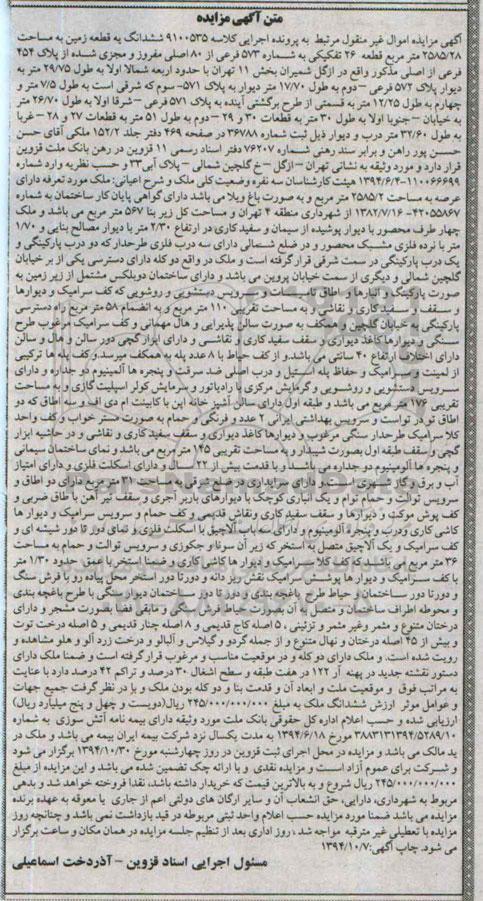 متن آگهی مزایده
آگهی مزایده اموال غیر منقول مرتبط به پرونده اجرایی کلاسه ۹۱۰۰۵۳۵ ششدانگ یه قطعه زمین به مساحت
۲۵۸۵/۲۸ متر مربع قطعه ۲۶ تفکیکی به شماره ۵۷۳ فرعی از ۸۰ اصلی مفروز و مجزی شده از پلاک ۴۵۴
فرعی از اصلی مذکور واقع در ازگل شمیران بخش ۱۱ تهران با حدود اربعه شمالا اولا به طول ۲۹/۷۵ متر به
دیوار پلاک ۵۷۲ فرعی – دوم به طول ۱۷/۷۰ متر دیوار به پلاک ۵۷۱– سوم که شرقی است به طول ۷/۵ متر و
چهارم به طول ۱۲/۲۵ متر به قسمتی از طرح برگشتی آینده به پلاک ۵۷۱ فرعی – شرقا اولا به طول ۲۶/۷۰ متر
به خیابان – جنوبا اولا به طول ۳۰ متر به قطعات ۳۰ و ۲۹ – دوم به طول ۵۱ متر به قطعات ۲۷ و ۲۸ – غربا
به طول ۳۲/۶۰ متر درب و دیوار ذیل ثبت شماره ۳۶۷۸۸ در صفحه ۴۶۹ دفتر جلد ۱۵۲/۲ ملکی آقای حسن
حسن پور راهن و برابر سند رهنی شماره ۷۶۲۰۷ دفتر اسناد رسمی ۱۱ قزوین در رهن بانک ملت قزوین
قرار دارد و مورد وثیقه به نشانی تهران –ازگل –خ گلچین شمالی – پلاک آبی۳۳ و حسب نظریه وارد شماره
۱۱۰۰۶۶۶۹۹–۱۳۹۴/۶/۴ هیئت کارشناسان سه نفره وضعیت کلی ملک و شرح اعیانی: ملک مورد تعرفه دارای
عرصه به مساحت ۲۵۸۵/۲ متر مربع و به صورت باغ ویلا می باشد دارای گواهی پایان کار ساختمان به شماره
۴۲۰۵۵۸۶۷– ۱۳۸۲/۷/۱۶ از شهرداری منطقه ۴ تهران و مساحت کل زیر بنا ۵۶۷ متر مربع می باشد و ملک
چهار طرف محصور با دیوار پوشیده از سیمان و سفید کاری در ارتفاع ۲/۳۰ متر با دیوار مصالح بنایی و ۱/۷۰
متر با نرده فلزی مشبک محصور و در ضلع شمالی دارای سه درب فلزی طرحدار که دو درب پارکینگی و
یک درب پارکینگی در سمت شرقی قرار گرفته است و ملک در واقع دو کله دارای دسترسی یکی از بر خیابان
گلچین شمالی و دیگری از سمت خیابان پروین می باشد و دارای ساختمان دوبلکس مشتمل از زیر زمین به
صورت پارکینگ و انبارها و اطاق تاسیسات و سرویس دستشویی و روشویی که کف سرامیک و دیوارها
و سقف و سفید کاری و نقاشی و به مساحت تقریبی ۱۱۰ متر مربع و به انضمام ۵۸ متر مربع راه دسترسی
پارکینگی به خیابان گلچین و همکف به صورت سالن پذیرایی و هال مهمانی و کف سرامیک مرغوب طرح
سنگی و دیوارها کاغذ دیواری و سقف سفید کاری و نقاشی و دارای ابزار گچی دور سالن و هال و سالن
دارای اختلاف ارتفاع ۴۰ سانتی می باشد.و از کف حیاط با ۸ عدد پله به همکف میرسد.و کف پله ها ترکیبی
از لمینت و سرامیک و حفاظ پله استیل و درب اصلی ضد سرقت و پنجره ها آلمینیوم دو جداره و دارای
سرویس دستشویی و روشویی و گرمایش مرکزی با رادیاتور و سرمایش کولر اسپلیت گازی و به مساحت
تقریبی ۱۷۶ متر مربع می باشد و طبقه اول دارای سالن آشپز خانه اپن با کابینت ام دی اف و سه اطاق که دو
اطاق تو در تواست و سرویس بهداشتی ایرانی ۲ عدد و فرنگی و حمام به صورت مستر خواب و کف واحد
کلا سرامیک طرحدار سنگی مرغوب و دیوارها کاغذ دیواری و سقف سفید کاری و نقاشی و در حاشیه ابزار
گچی و سقف طبقه اول بصورت شیبدار و به مساحت تقریبی ۱۴۵ متر مربع می باشد و نمای ساختمان سیمانی
و پنجره ها آلومینیوم دو جداره می باشد و با قدمت بیش از ۲۲ سال و دارای اسکلت فلزی و دارای امتیاز
آب و برق و گاز شهری است و دارای سرایداری در ضلع شرقی به مساحت ۳۱ مترمربع دارای دو اطاق و
سرویس توالت و حمام توام و یک انباری کوچک با دیوارهای باربر آجری و سقف تیر آهن با طاق ضربی و
کف پوش موکت و دیوارها و سقف سفید کاری ونقاش قدیمی و کف حمام و سرویس سرامیک و دیوار ها
کاشی کاری ودرب و پنجره آلومینیوم و دارای سه باب آلاچیق با اسکلت فلزی و نمای دور تا دور شیشه ای و
کف سرامیک و یک آلاچیق متصل به استخر که زیر آن سونا و جکوزی و سرویس توالت و حمام به مساحت
۳۶ متر مربع می باشد که کف کلا سرامیک و دیوار ها کاشی کاری و ضمنا استخر با عمق حدود ۱/۳۰ متر
با کف سرامیک و دیوار ها پوشش سرامیک نقش ریز دانه و دورتا دور استخر محل پیاده رو با فرش سنگ
و دورتا دور ساختمان و حیاط طرح باغچه بندی و دور تا دور ساختمان دیوار سنگی با طرح باغچه بندی
و محوطه اطراف ساختمان و متصل به آن بصورت حیاط فرش سنگی و مابقی فضا بصورت مشجر و دارای
درختان متنوع و مثمر وغیر مثمر و تزئینی ۵۰ اصله کاج قدیمی و ۸ اصله چنار قدیمی و ۵ اصله درخت توت
و بیش از ۴۵ اصله درختان و نهال متنوع و از جمله گردو و گیلاس و آلبالو و درخت زرد آلو و هلو مشاهده و
رویت شده است. و ملک دارای دو کله و در موقعیت مناسب و مرغوب قرار گرفته است و ضمنا ملک دارای
دستور نقشته جدید در پهنه آر ۱۲۲ در هفت طبقه و سطح اشغال ۳۰ درصد و تراکم ۴۲ درصد دارد با عنایت
به مراتب فوق و موقعیت ملت و ابعاد آن و قدمت بنا و دو کله بودن ملک و با در نظر گرفت جمیع جهات
و عوامل موثر ارزش ششدانگ ملک به مبلغ ۲۴۵/۰۰۰/۰۰۰/۰۰۰ ریال(دویست و چهل و پنج میلیارد ریال)
ارزیابی شده و حسب اعلام اداره کل حقوقی بانک ملت مورد وثیقه دارای بیمه نامه آتش سوزی به شماره
۳۸۸۳۱۳۱۳۹۴/۵۲۸۹/۱۰ مورخ ۱۳۹۴/۶/۱۸ به مدت یکسال نزد شرکت بیمه ایران بیمه می باشد و ملک در
ید مالک می باشد و مزایده در محل اجرای ثبت قزوین در روز چهارشنبه مورخ ۱۳۹۴/۱۰/۳۰ برگزار می شود
و شرکت برای عموم آزاد است و مزایده نقدی و با ارائه چک تضمین شده می باشد و این مزایده از مبلغ
۲۴۵/۰۰۰/۰۰۰/۰۰۰ ریال شروع و به بالاترین قیمت که خریدار داشته باشد، نقدا فروخته خواهد شد و بدهی
مربوط به شهرداری، دارایی، حق انشعاب آن و سایر ارگان های دولتی اعم از جاری یا معوقه به عهده برنده
مزایده می باشد ضمنا مورد مزایده حسب اعلام واحد ثبتی مربوطه در قید بازداشت نمی باشد و چنانچه روز
مزایده با تعطیلی غیر مترقبه مواجه شد ، روز اداری بعد از تنظیم جلسه مزایده در همان مکان و ساعت برگزار
می شود. چاپ آگهی:۱۳۹۴/۱۰/۷
مسئول اجرایی اسناد قزوین –آذردخت اسماعیلی